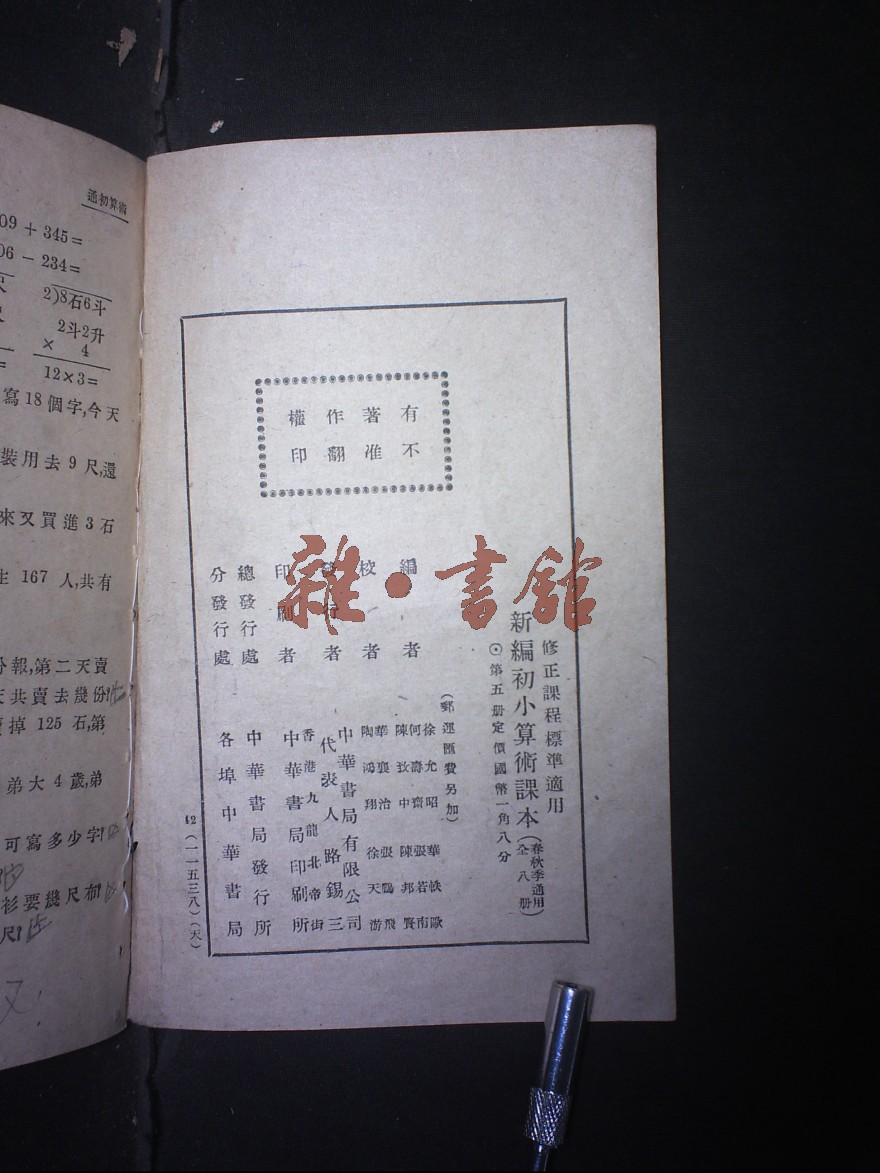 修正課程標準適用
新編初小算術課本
(春秋季通用
全八册)
⊙第五册定價國幣一角八分
(郵運匯費另加)
有著作權
不准翻印
編 者
徐允昭 華軼歐
何壽齋 張若南
陳致中 陳邦賢
校 者
華襄治 張鶴飛
陶鴻翔 徐天游
發行者
中華書局有限公司
代表人 路錫三
印刷者
香港九龍北帝街
中華書局印刷所
總發行處
中華書局發行所
分發行處
各埠中華書局
42 (一一五三八)(天)
雜·書館
通初算術
09 + 345 =
06 − 234 =
2)8石6斗
2斗2升
× 4
12 × 3 =
寫 18 個字,今天
裝用去 9 尺,還
來又買進 3 石
生 167 人,共有
分報,第二天賣
天共賣去幾份?
掉 125 石,第
弟大 4 歲,弟
可寫多少字?
衫要幾尺布?
尺?